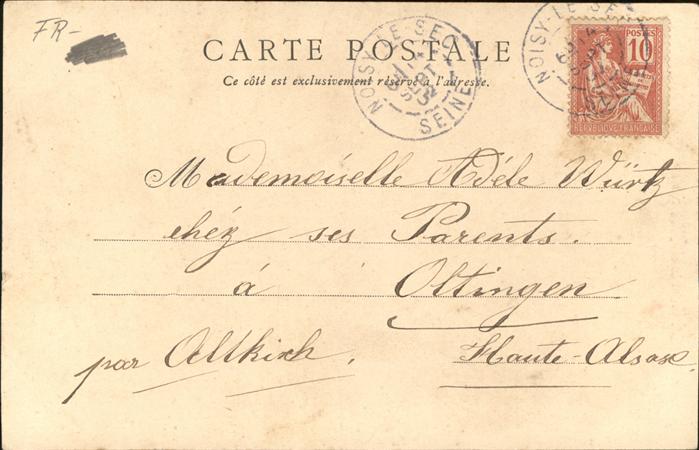 FR-
CARTE POSTALE
Ce côté est exclusivement réservé à l'adresse.
NOISY-LE-SEC
SEINE
NOISY-LE-SEC
POSTES
10
REPUBLIQUE FRANÇAISE
Mademoiselle Adéle Würtz
chéz ses Parents.
à Oltingen
par Altkirch, Haute-Alsace